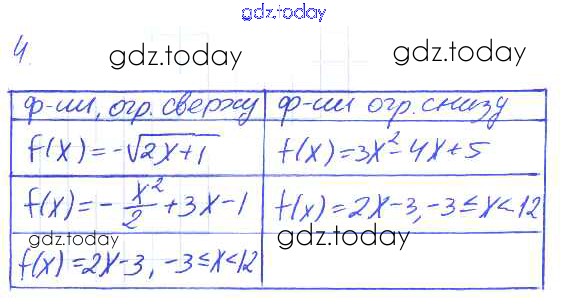 gdz.today
4.
gdz.today gdz.today
ф-ии, огр. сверху ф-ии огр. снизу
f(x)=-√2x+1 f(x)=3x²-4x+5
f(x)=-x²/2+3x-1 f(x)=2x-3,-3≤x<12
gdz.today gdz.today
f(x)=2x-3, -3≤x<12